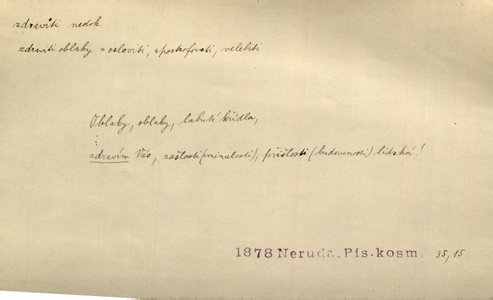 zdraviti nedok.
zdraviti oblaky = osloviti, apostrofovati, velebiti
Oblaky, oblaky, labutí křídla,
:
zdravím Vás, zašlosti (minulosti), příštosti (budoucnosti) lidská!
1878 Neruda, Pís. kosm. 35, 15